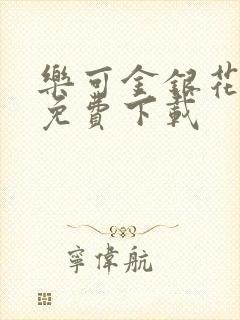 樂可金銀花
免費下載
寧偉航